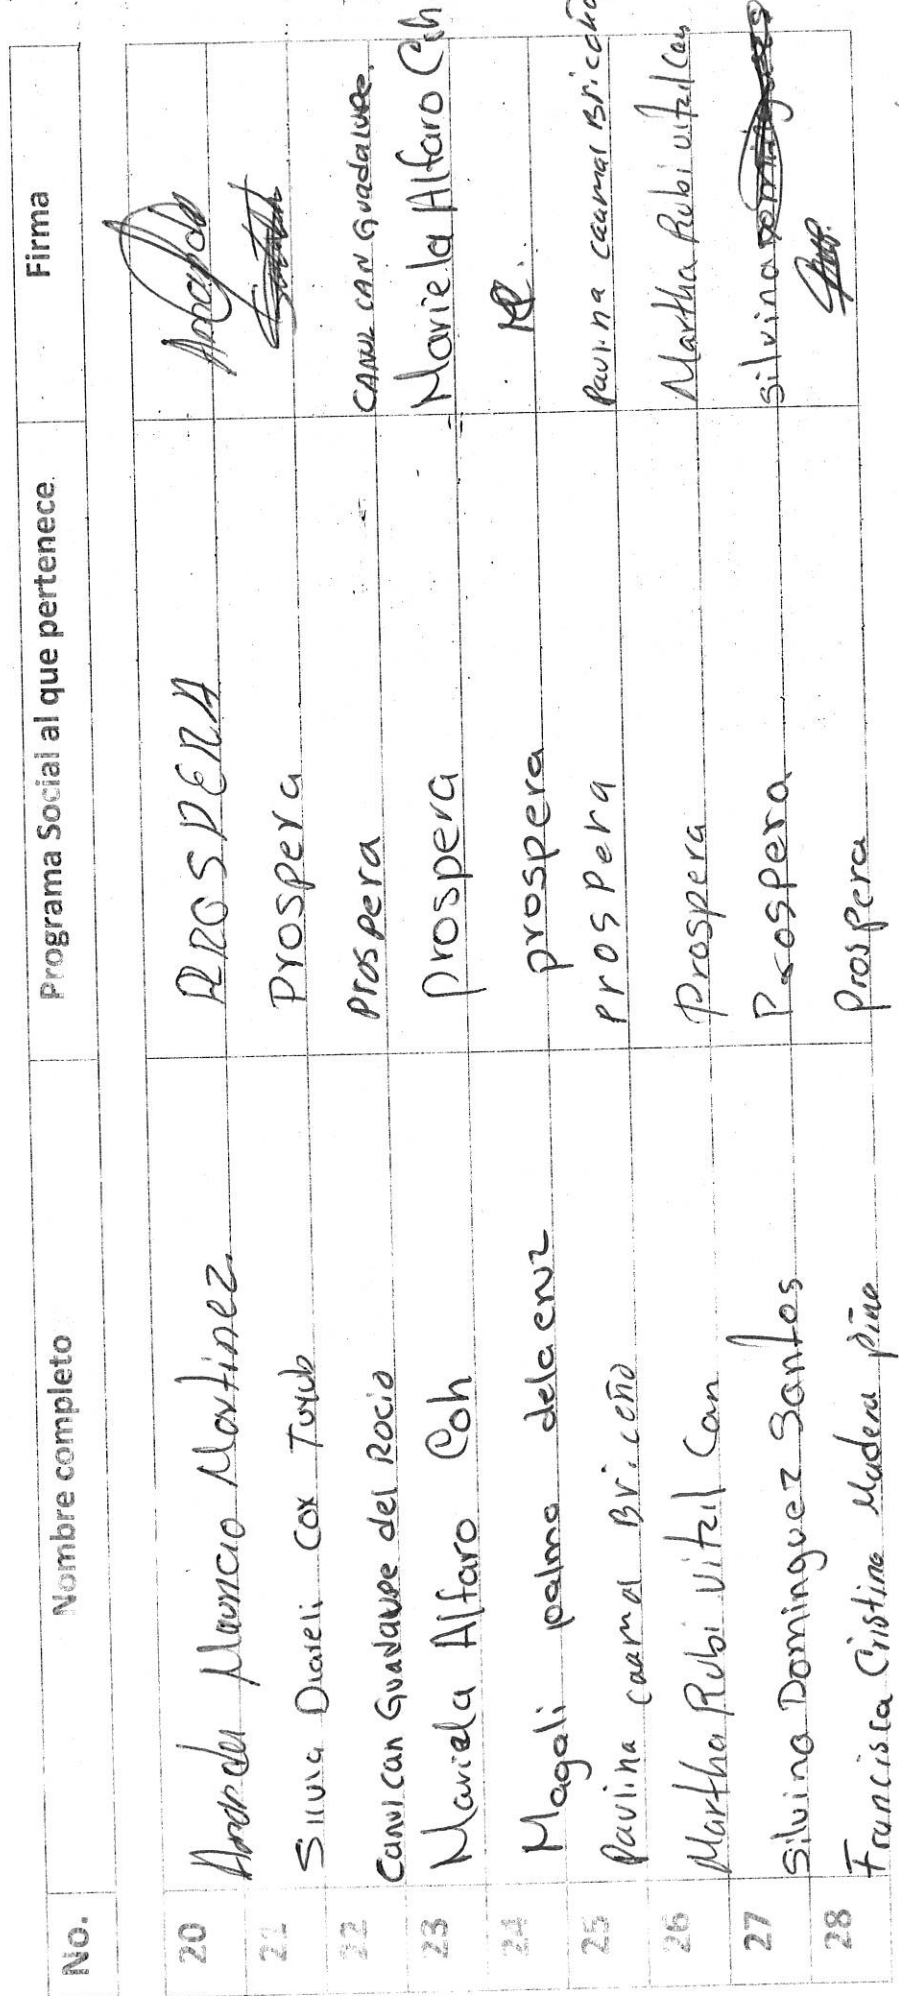 No. Nombre completo Programa Social al que pertenece Firma
20 Mauricio Martinez PROSPERA
21 Silvia Diareli Cox Tuyub Prospera
22 Canul Can Guadalupe del Rocio Prospera CANUL CAN Guadalupe.
23 Mariela Alfaro Coh prospera Mariela Alfaro Coh
24 Magali palma dela cruz prospera
25 Paulina caamal Briceño prospera Paulina caamal Briceño
26 Martha Rubi Vitzil Can Prospera Martha Rubi Vitzil Can
27 Silvina Dominguez Santos Prospera Silvina Dominguez
28 Francisca Cristina Madera Prospera